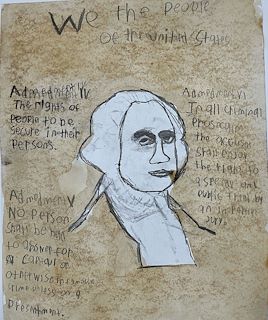 We the People
Of the United States
Admedment IV
The rights of
people to be
secure in their
persons.
Admedment VI
In all criminal
the accused
shall enjoy
the right to
a speedy and
public trial by
an impartial
jury.
Admedment V
NO Person
Shall be held
to answer for
a Capital or
otherwise
crime unless on a
Presentment.